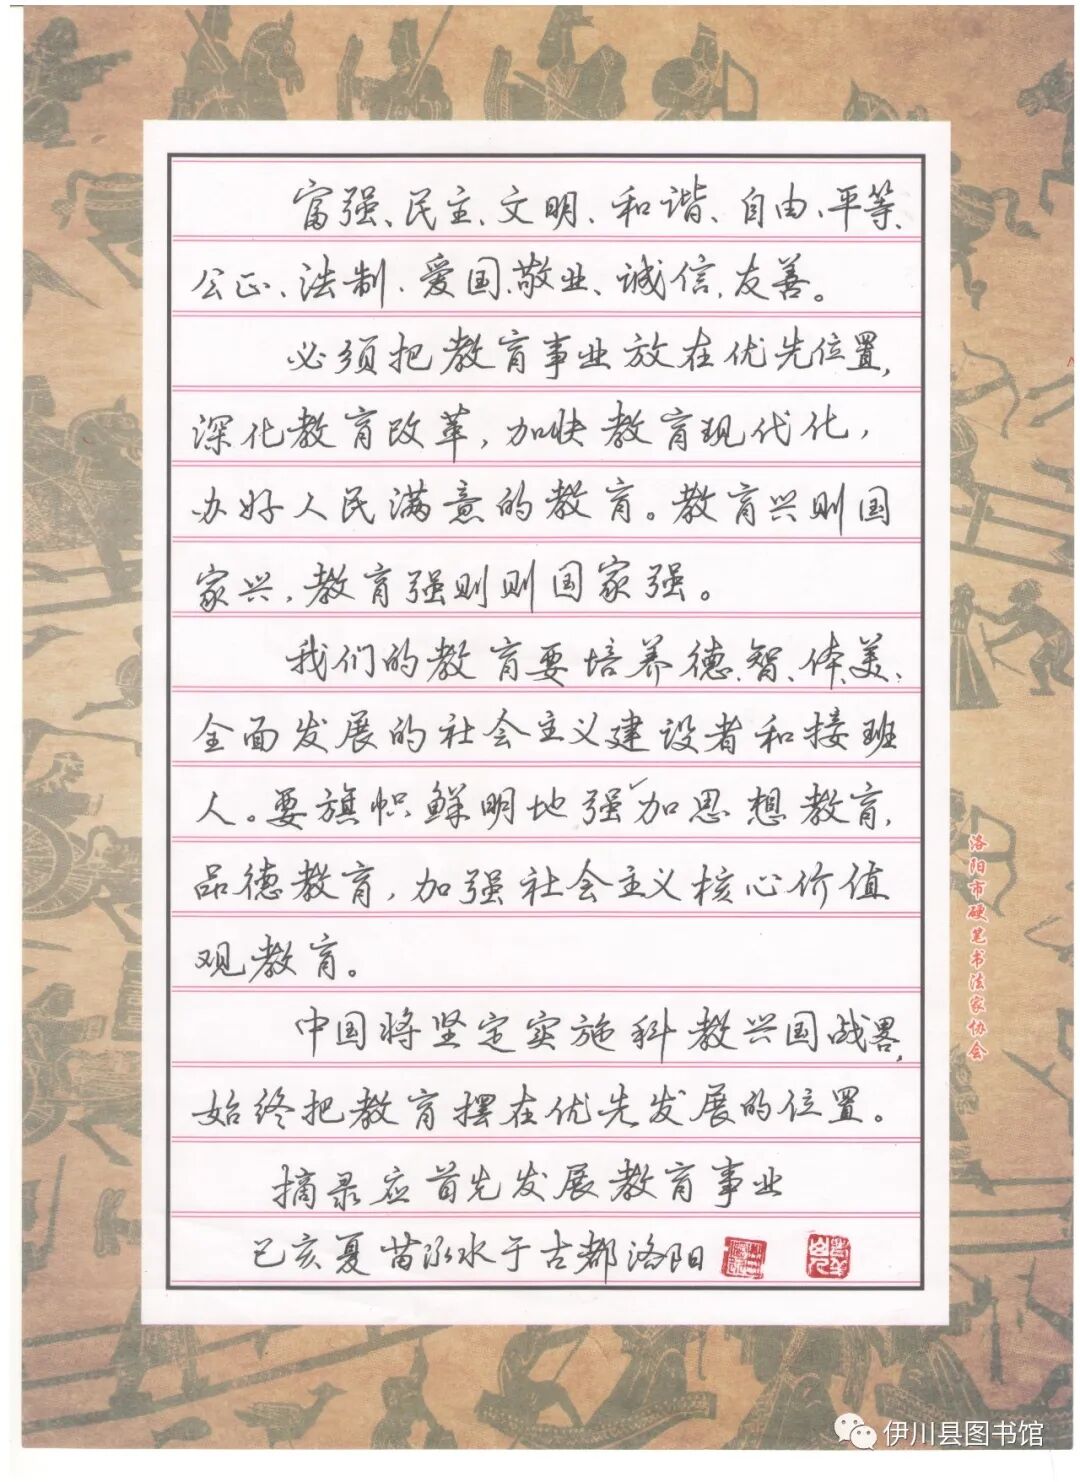 富强、民主、文明、和谐、自由、平等、
公正、法制、爱国、敬业、诚信、友善。
必须把教育事业放在优先位置,
深化教育改革,加快教育现代化,
办好人民满意的教育。教育兴则国
家兴,教育强则则国家强。
我们的教育要培养德、智、体、美、
全面发展的社会主义建设者和接班
人。要旗帜鲜明地强加思想教育,
品德教育,加强社会主义核心价值
观教育。
中国将坚定实施科教兴国战略,
始终把教育摆在优先发展的位置。
摘录应首先发展教育事业
己亥夏苗泓水于古都洛阳
洛阳市硬笔书法家协会
伊川县图书馆